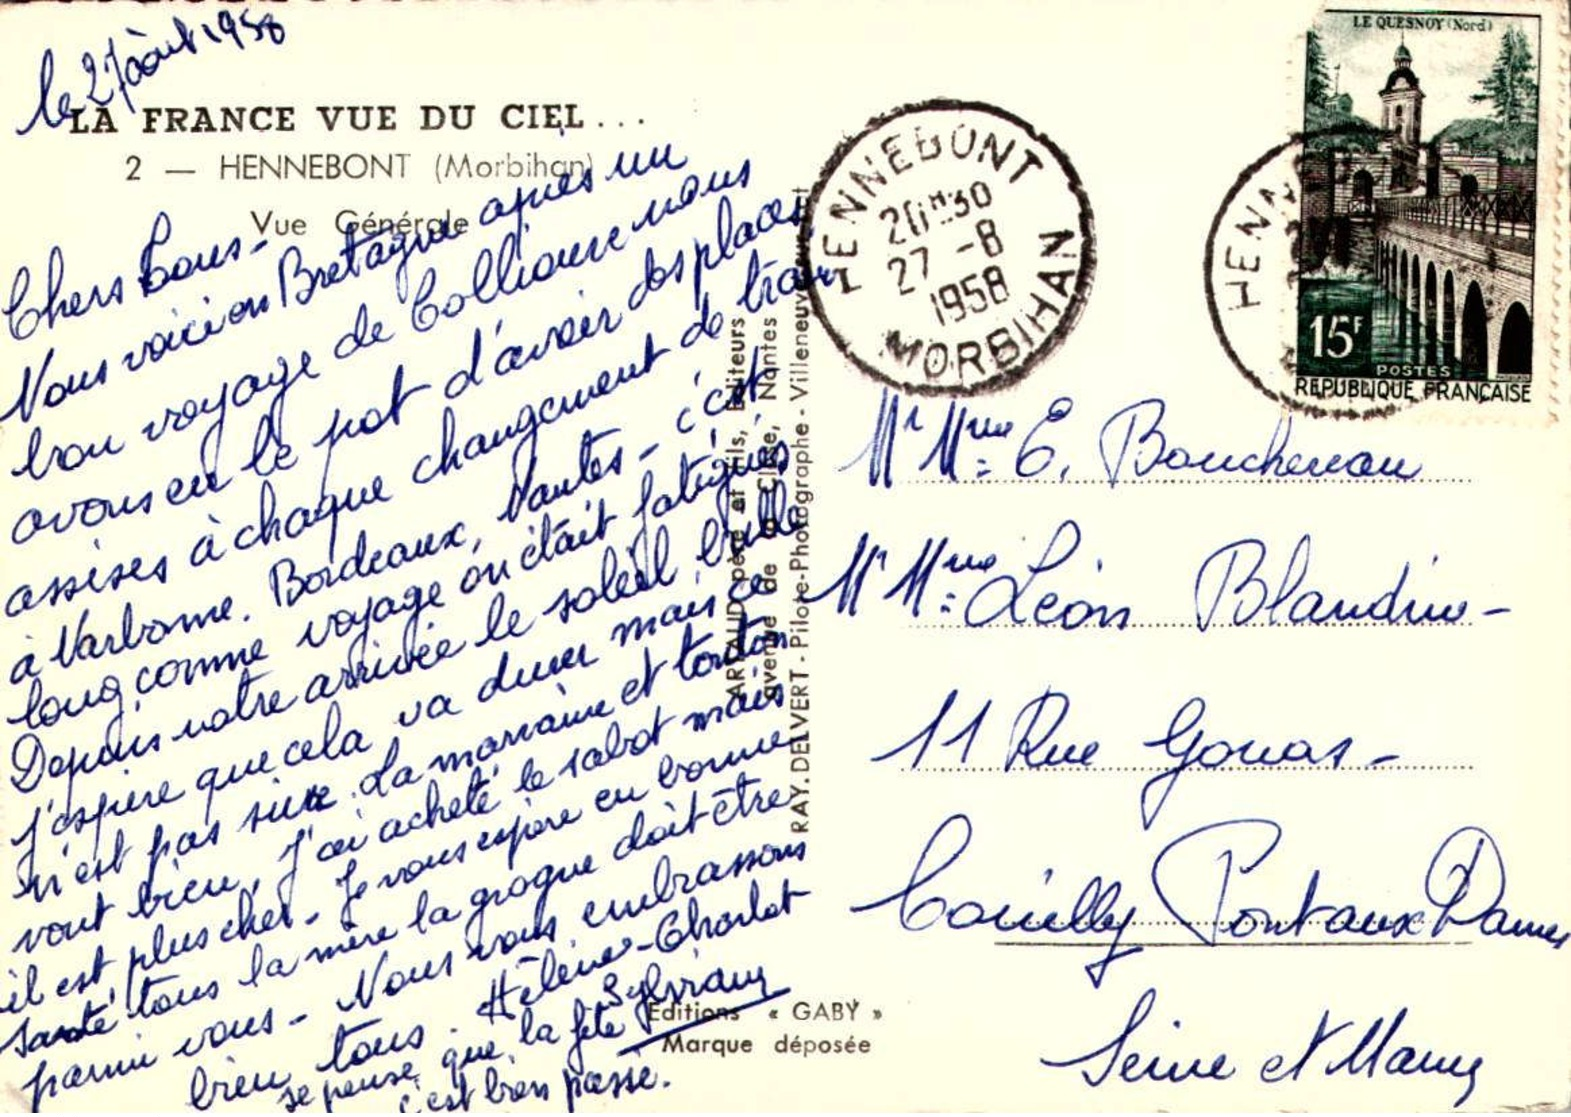 le 27 août 1958
LA FRANCE VUE DU CIEL...
2 — HENNEBONT (Morbihan)
Vue Générale
Chers tous -
Nous voici en Bretagne après un
bon voyage de Collioure nous
avons eu le pot d'avoir des places
assises à chaque changement de train
à Narbonne. Bordeaux, Nantes - c'est
long, comme voyage on était fatigués
Depuis notre arrivée le soleil brille
j'espère que cela va durer mais ce
n'est pas sûr. La marraine et tonton
vont bien, j'ai acheté le sabot mais
il est plus cher - Je vous espère en bonne
santé tous la mère la grogne doit être
parmi vous - Nous vous embrassons
bien tous. Hélène - Charlot
Sylviane
je pense que la fête
c'est bien passé.
ARTAUD père et fils, Editeurs
avenue de la Close, Nantes
RAY. DELVERT - Pilote-Photographe - Villeneuve
Editions « GABY »
Marque déposée
HENNEBONT
20H30
27 -8
1958
MORBIHAN
HENNE
LE QUESNOY (Nord)
15F
POSTES
REPUBLIQUE FRANÇAISE
Mr Mme E. Bouchereau
Mr Mme Léon Blandin -
11 Rue Gouas -
Couilly Pont aux Dames
Seine et Marne